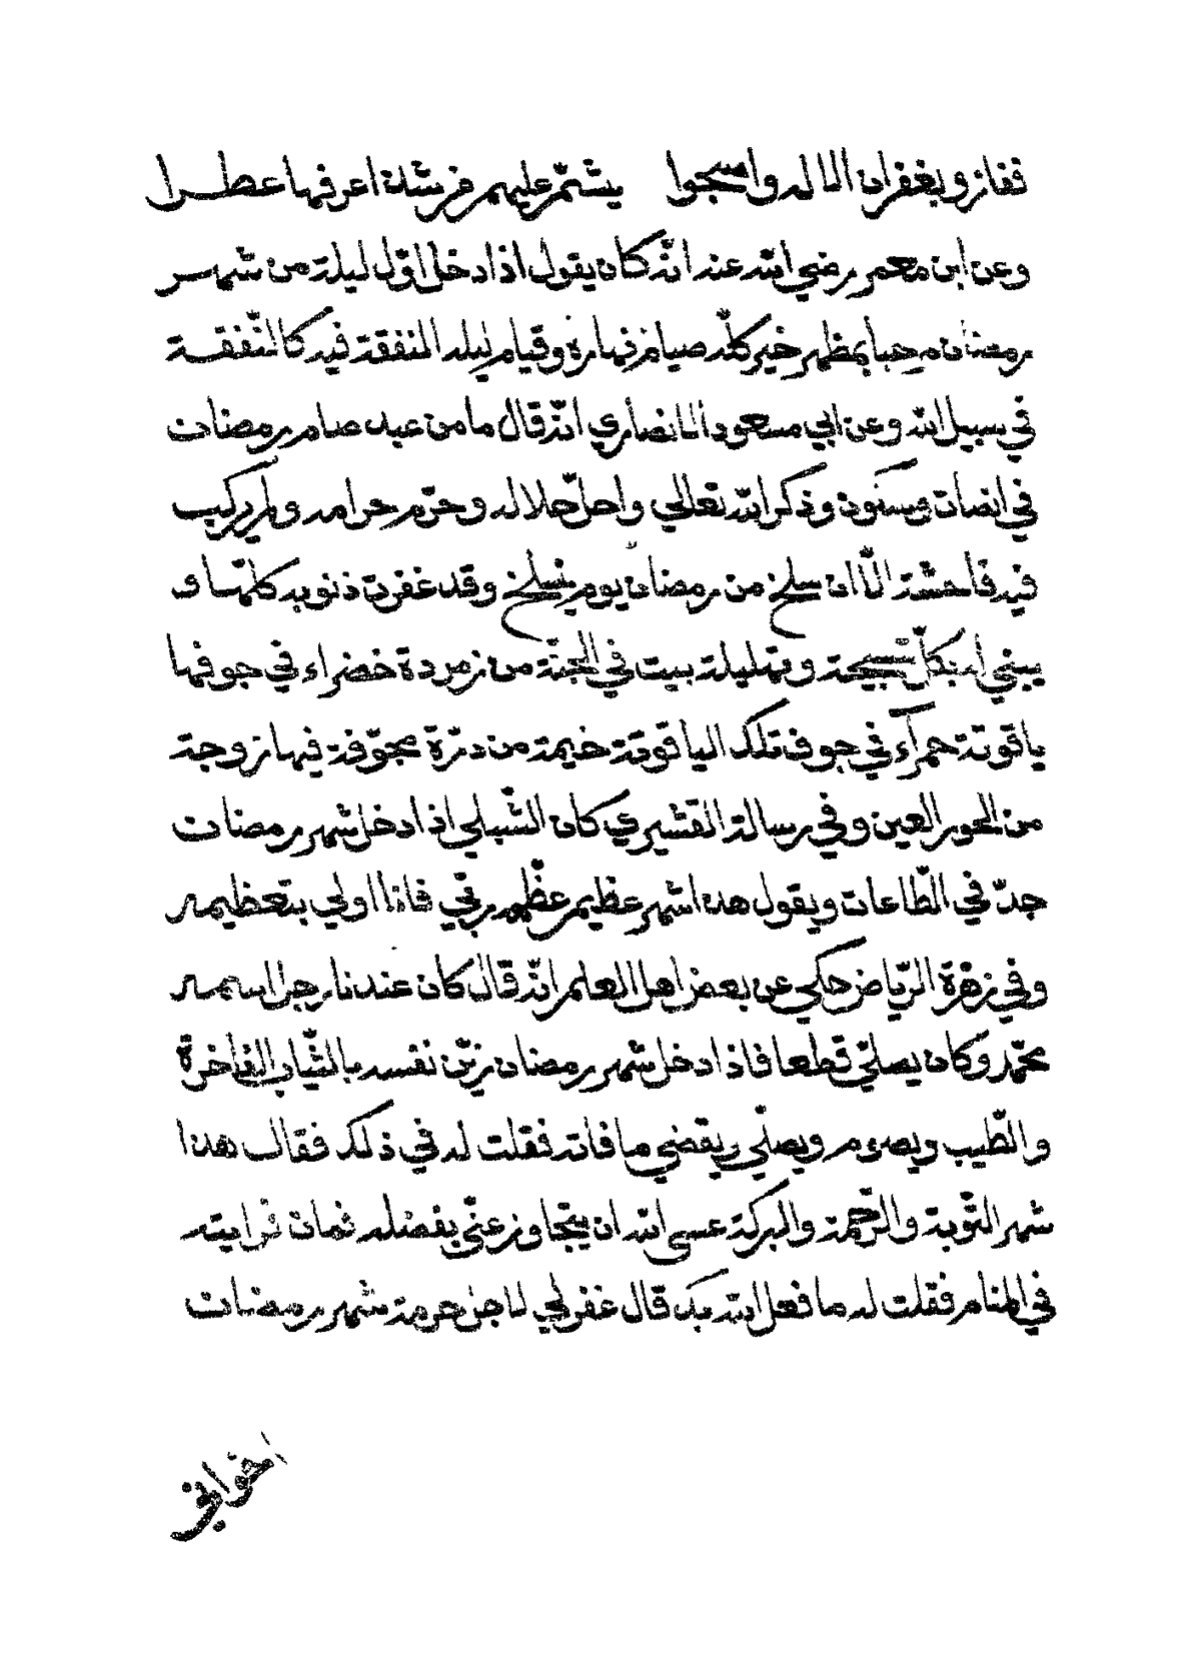 ففازو بغفران الاله واصبحوا يشتمّ عليهم من شدة اعرفها عطرا
وعن ابن معمر رضي الله عنه انّه كان يقول اذا دخل اوّل ليلة من شهر
رمضان مرحبا بمطهر خير كلّه صيام نهاره وقيام ليله المنفقة فيه كالنّفقة
في سبيل الله وعن ابي مسعود الانصاري انّه قال ما من عبد صام رمضان
في انصات وسكون وذكر الله تعالى واحلّ حلاله وحرّم حرامه ولم يركب
فيه فاحشة الّا ان سلخ من رمضان يوم ينسلخ وقد غفرت ذنوبه كلّها و
يبني له بكلّ تسبيحة وتهليلة بيت في الجنّة من زمردة خضراء في جوفها
ياقوتة حمرآء في جوف تلك الياقوتة خيمة من درّة مجوّفة فيها زوجة
من الحور العين وفي رسالة القشيري كان الشّبلي اذا دخل شهر رمضان
جدّ في الطّاعات ويقول هذا شهر عظيم عظّمه ربّي فانا اولى بتعظيمه
وفي زهرة الرّياض حكي عن بعض اهل العلم انّه قال كان عندنا رجل اسمه
محمّد وكان يصلّي قطعا فاذا دخل شهر رمضان زيّن نفسه بالثّياب الفاخرة
والطّيب ويصوم ويصلّي ويقضي ما فاته فقلت له في ذلك فقال هذا
شهر التّوبة والرّحمة والبركة عسى الله ان يتجاوز عنّي بفضله ثمات فرايته
في المنام فقلت له ما فعل الله بك قال غفر لي لاجل حرمة شهر رمضان
اخواني